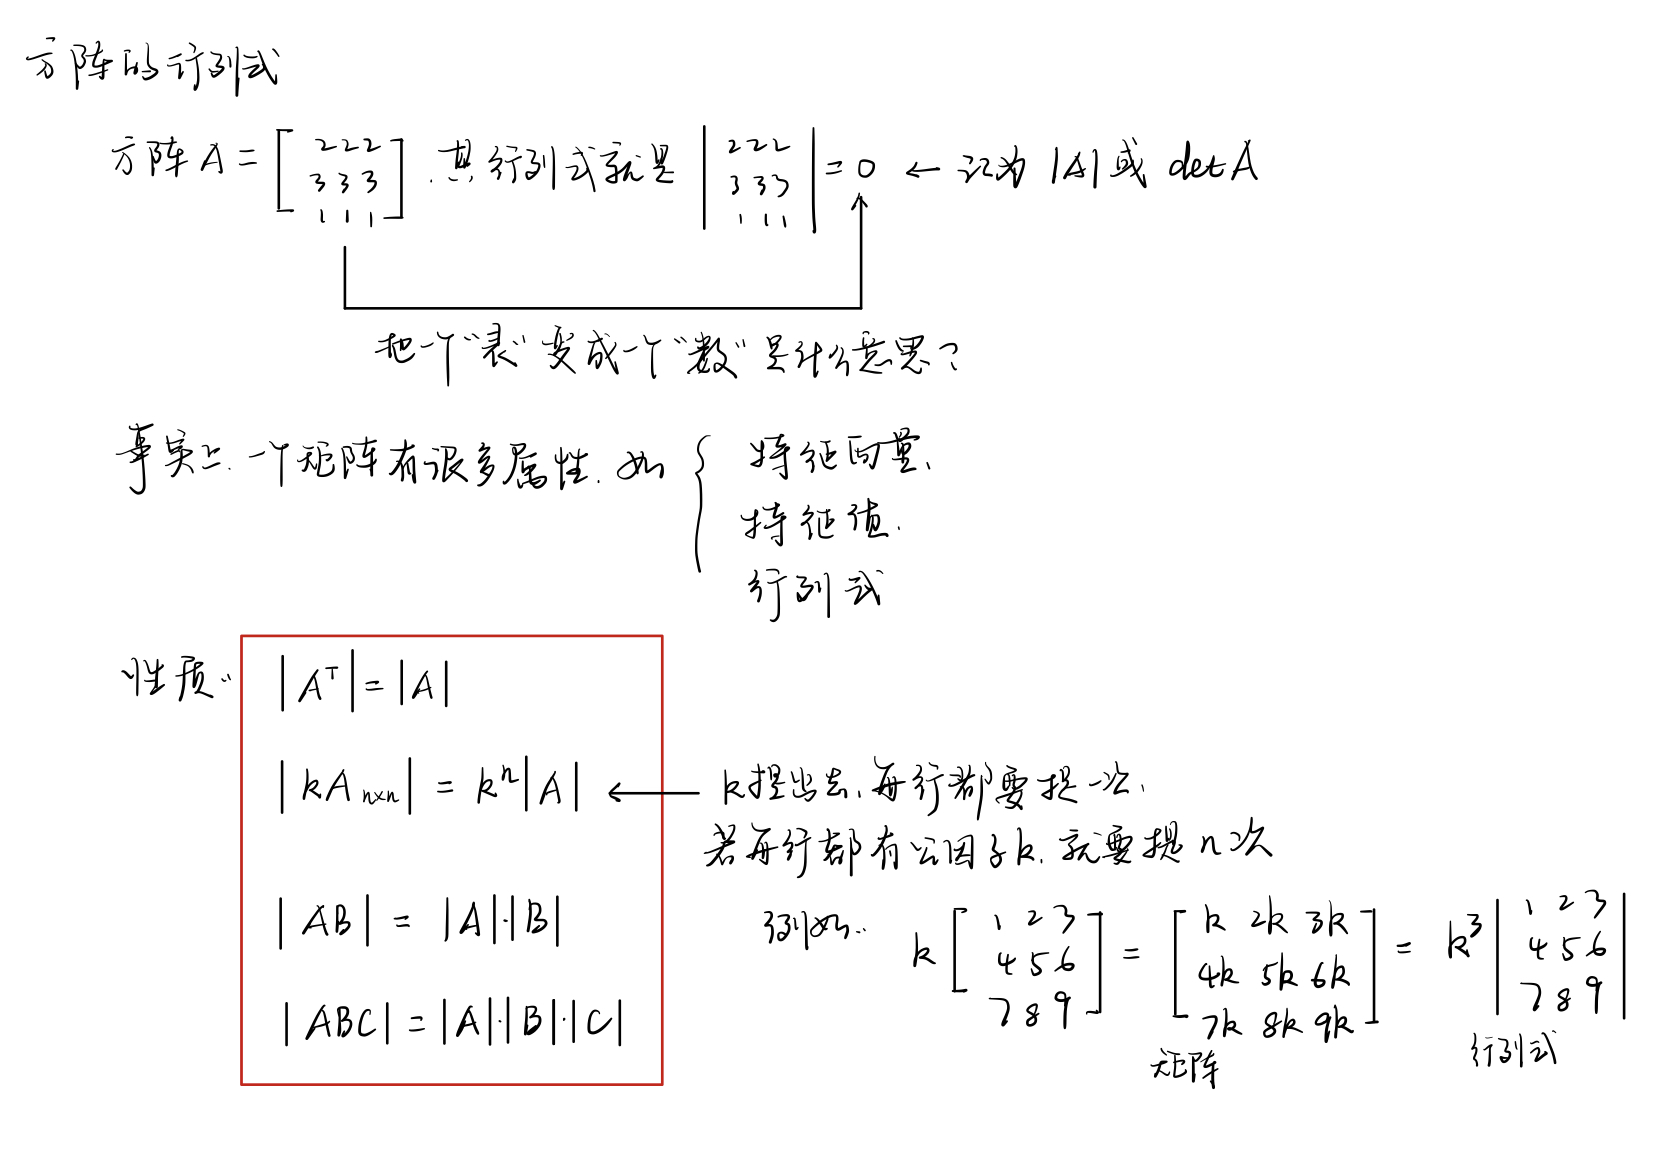 方阵的行列式
方阵 A = [ 2 2 2 ; 3 3 3 ; 1 1 1 ] . 其行列式就是 | 2 2 2 ; 3 3 3 ; 1 1 1 | = 0 ← 记为 |A| 或 detA
把一个"表"变成一个"数"是什么意思?
事实上. 一个矩阵有很多属性. 如 { 特征向量、
特征值.
行列式
性质:
|Aᵀ| = |A|
|kAₙₓₙ| = kⁿ|A| ← k提出去, 每行都要提一次,
若每行都有公因子k. 就要提n次
|AB| = |A|·|B|
例如: k [ 1 2 3 ; 4 5 6 ; 7 8 9 ] = [ k 2k 3k ; 4k 5k 6k ; 7k 8k 9k ] = k³ | 1 2 3 ; 4 5 6 ; 7 8 9 |
|ABC| = |A|·|B|·|C|
矩阵
行列式